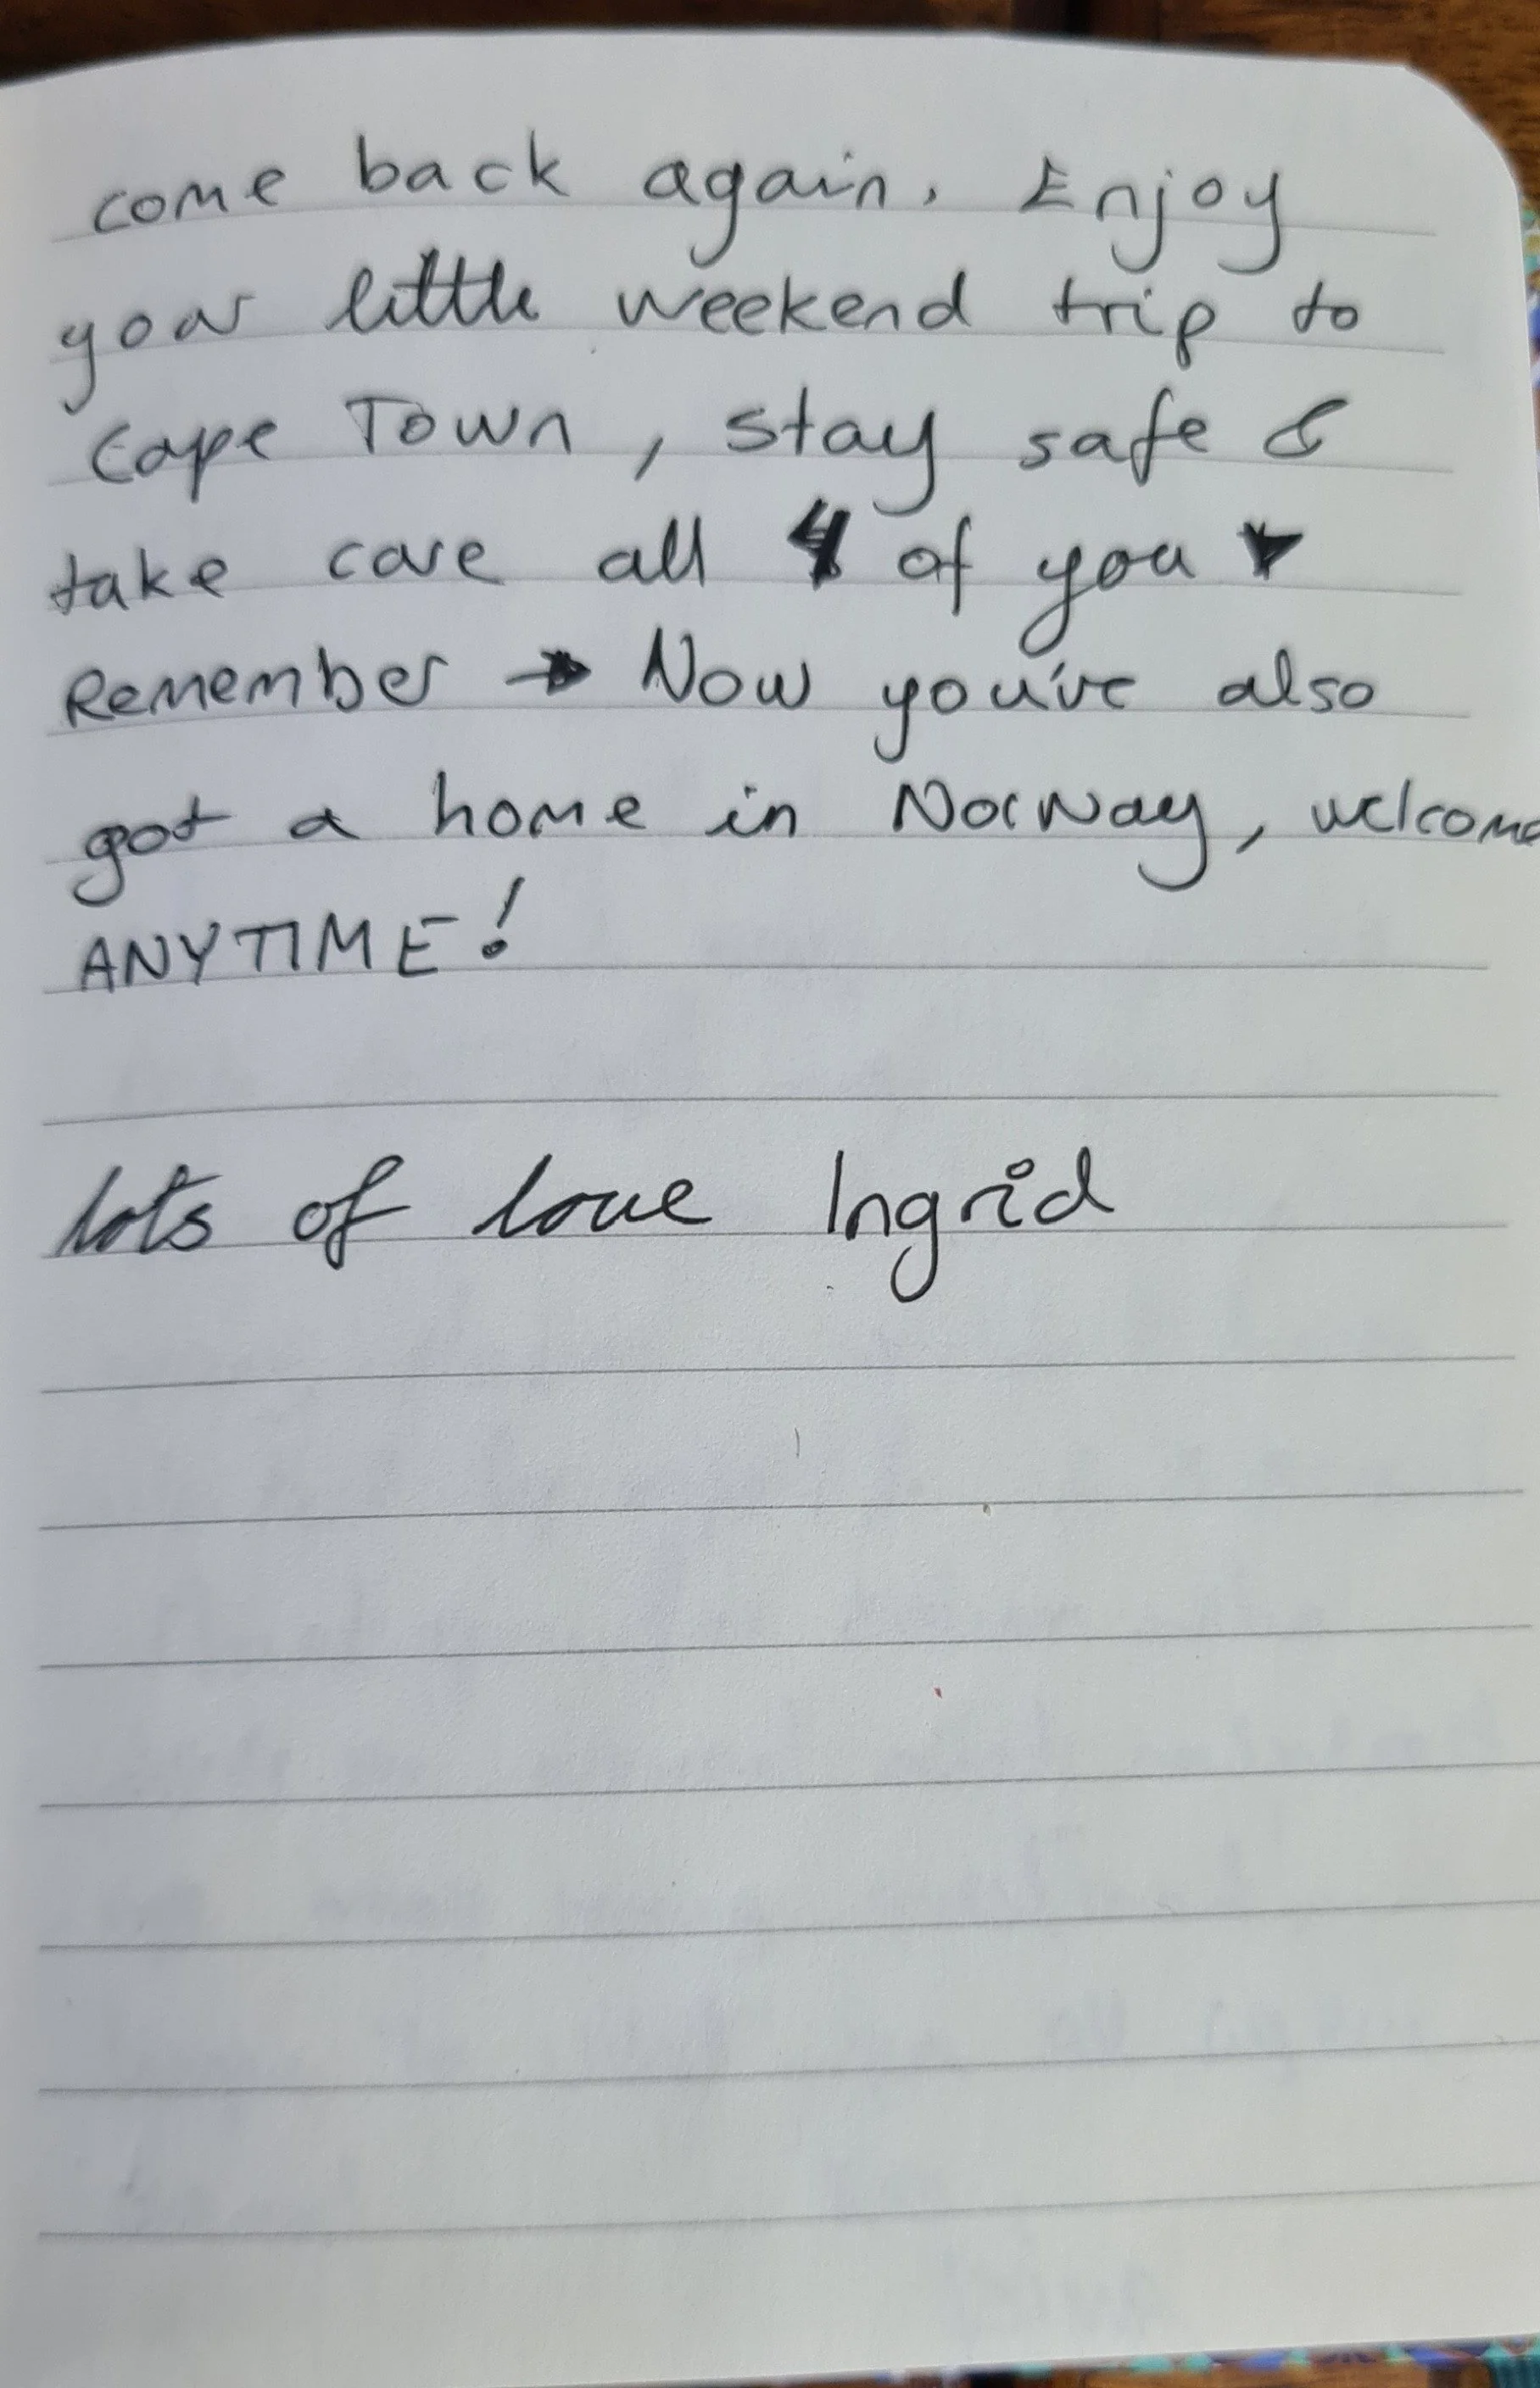 come back again. Enjoy
your little weekend trip to
Cape Town, stay safe &
take care all 4 of you ♥
Remember → Now you've also
got a home in Norway, welcome
ANYTIME!
lots of love Ingrid